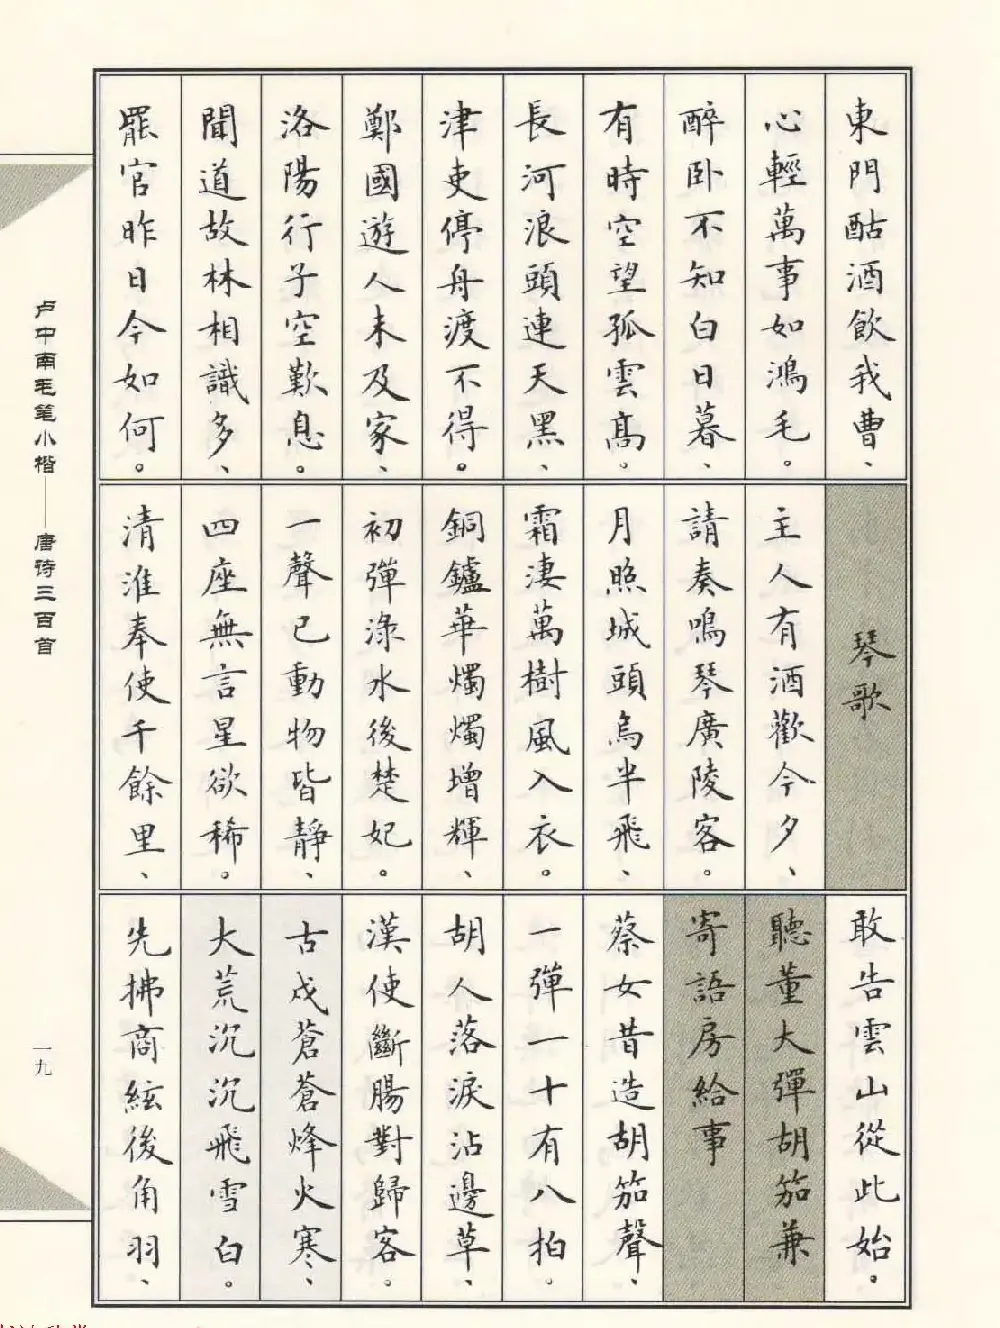 東門酤酒飲我曹、
心輕萬事如鴻毛。
醉卧不知白日暮、
有時空望孤雲高。
長河浪頭連天黑、
津吏停舟渡不得。
鄭國遊人未及家、
洛陽行子空歎息。
聞道故林相識多、
罷官昨日今如何。
琴歌
主人有酒歡今夕、
請奏鳴琴廣陵客。
月照城頭烏半飛、
霜淒萬樹風入衣。
銅鑪華燭燭增輝、
初彈淥水後楚妃。
一聲已動物皆靜、
四座無言星欲稀。
清淮奉使千餘里、
敢告雲山從此始。
聽董大彈胡笳兼
寄語房給事
蔡女昔造胡笳聲、
一彈一十有八拍。
胡人落淚沾邊草、
漢使斷腸對歸客。
古戍蒼蒼烽火寒、
大荒沉沉飛雪白。
先拂商絃後角羽、
卢中南毛笔小楷——唐诗三百首
一九